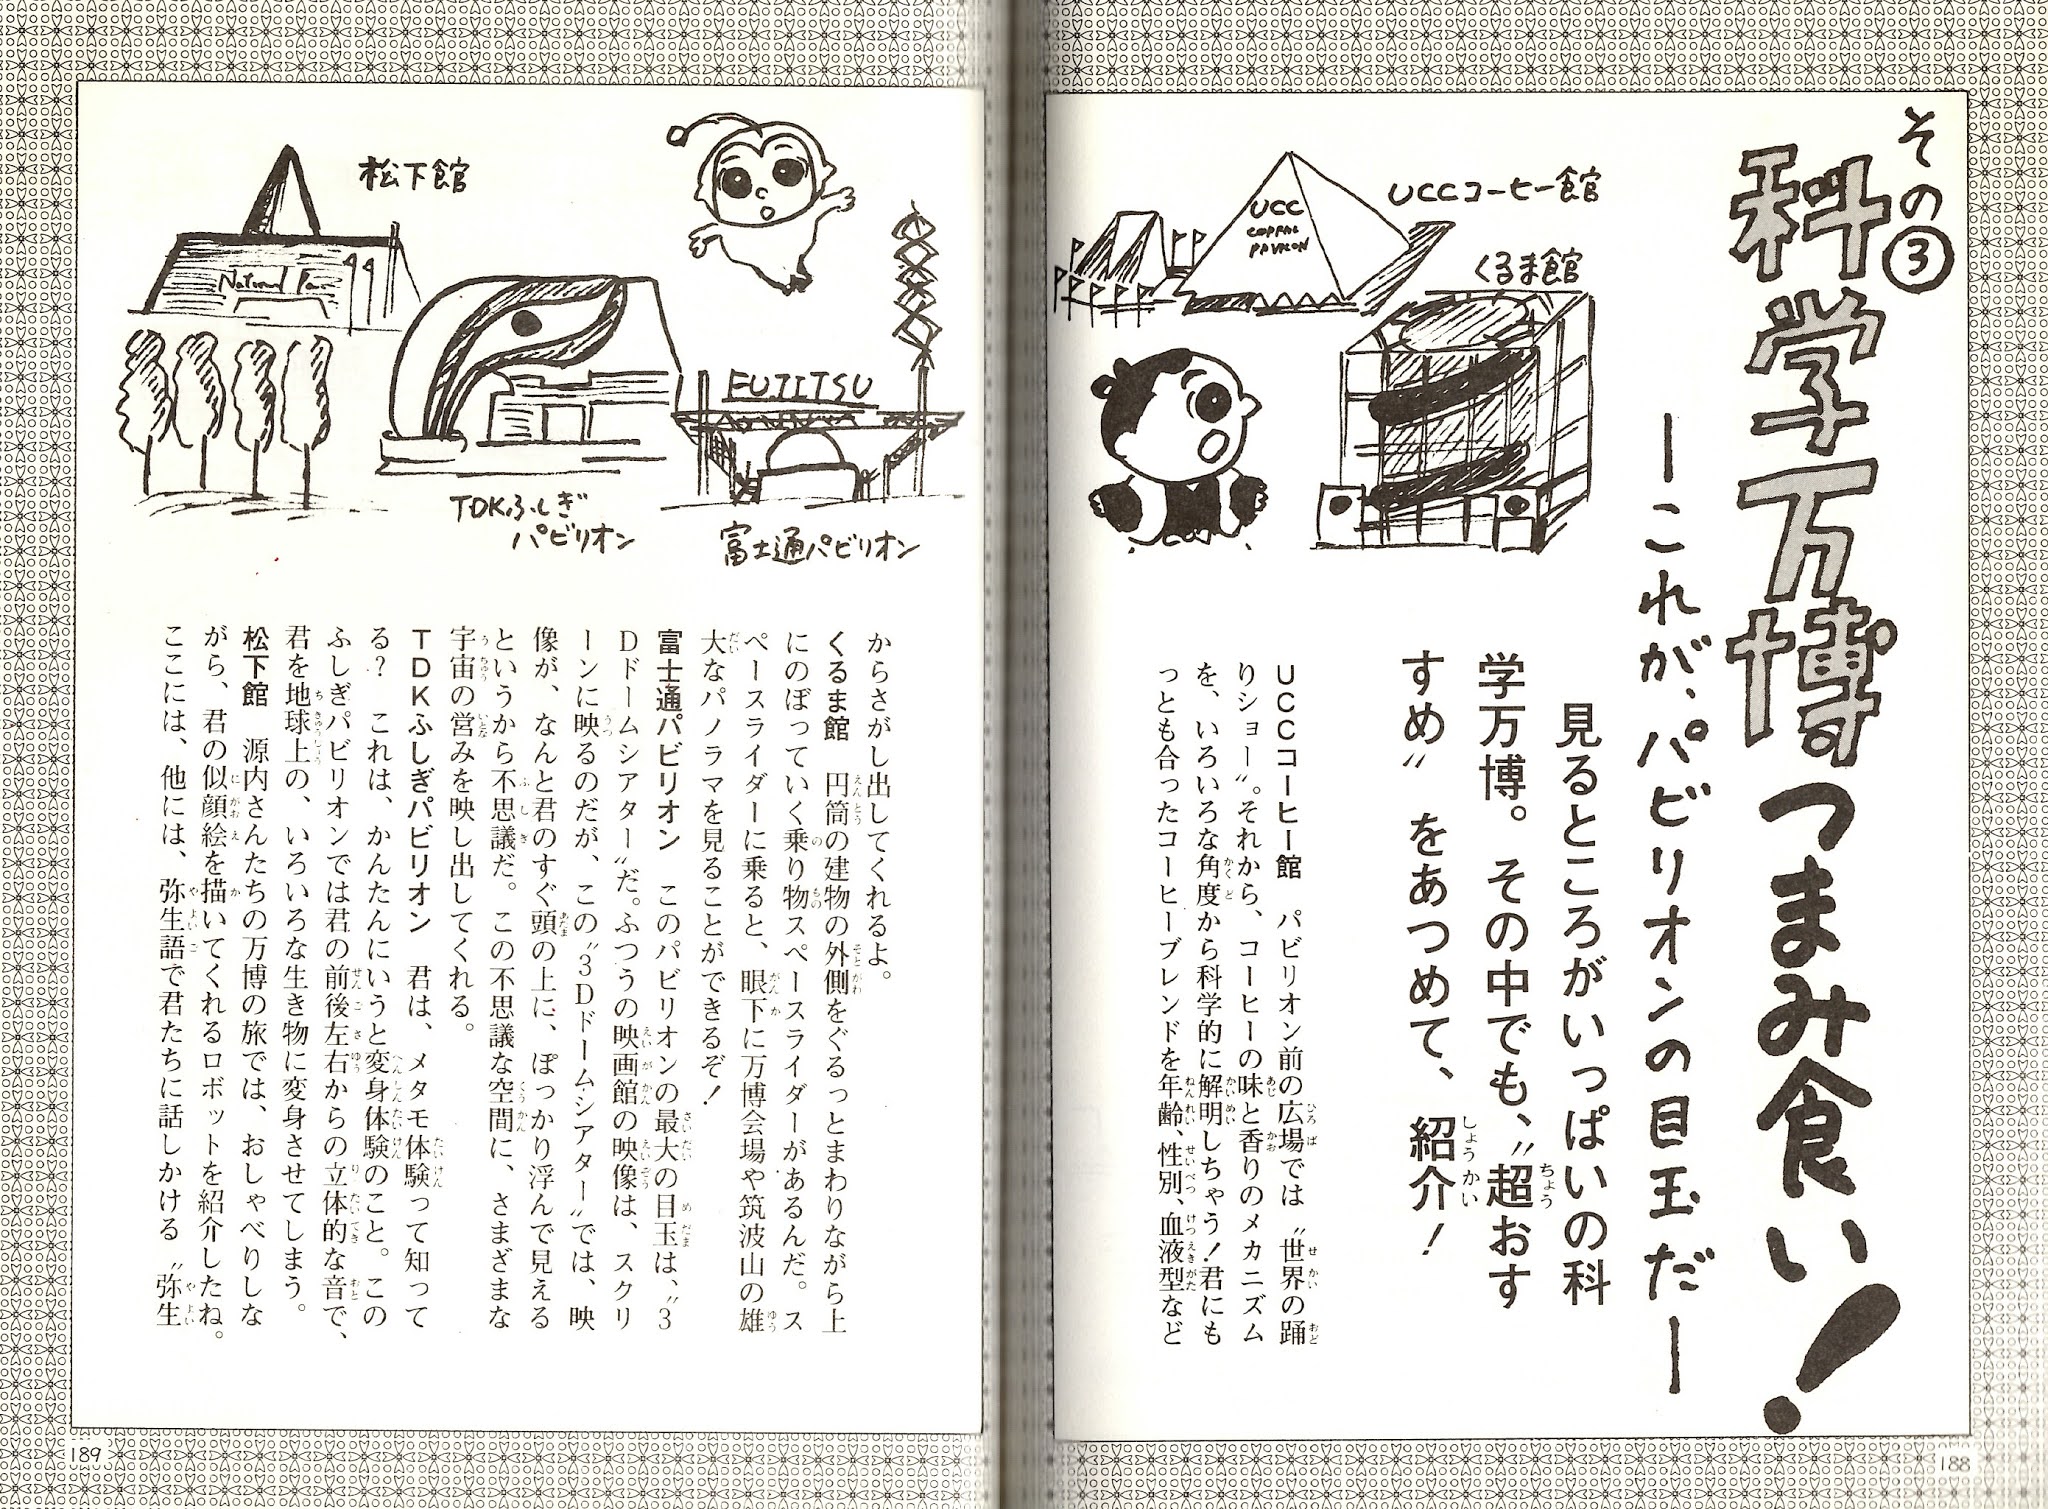 その③
科学万博つまみ食い!
—これが、パビリオンの目玉だ—
UCCコーヒー館
UCC
くるま館
見るところがいっぱいの科
学万博。その中でも、〝超おす
すめ〟をあつめて、紹介!
UCCコーヒー館　パビリオン前の広場では〝世界の踊
りショー〟。それから、コーヒーの味と香りのメカニズム
を、いろいろな角度から科学的に解明しちゃう!君にも
っとも合ったコーヒーブレンドを年齢、性別、血液型など
188
松下館
National
TDKふしぎ
パビリオン
FUJITSU
富士通パビリオン
からさがし出してくれるよ。
くるま館　円筒の建物の外側をぐるっとまわりながら上
にのぼっていく乗り物スペースライダーがあるんだ。ス
ペースライダーに乗ると、眼下に万博会場や筑波山の雄
大なパノラマを見ることができるぞ!
富士通パビリオン　このパビリオンの最大の目玉は、〝3
Dドームシアター〟だ。ふつうの映画館の映像は、スクリ
ーンに映るのだが、この〝3Dドームシアター〟では、映
像が、なんと君のすぐ頭の上に、ぽっかり浮んで見える
というから不思議だ。この不思議な空間に、さまざまな
宇宙の営みを映し出してくれる。
TDKふしぎパビリオン　君は、メタモ体験って知って
る?　これは、かんたんにいうと変身体験のこと。この
ふしぎパビリオンでは君の前後左右からの立体的な音で、
君を地球上の、いろいろな生き物に変身させてしまう。
松下館　源内さんたちの万博の旅では、おしゃべりしな
がら、君の似顔絵を描いてくれるロボットを紹介したね。
ここには、他には、弥生語で君たちに話しかける〝弥生
189